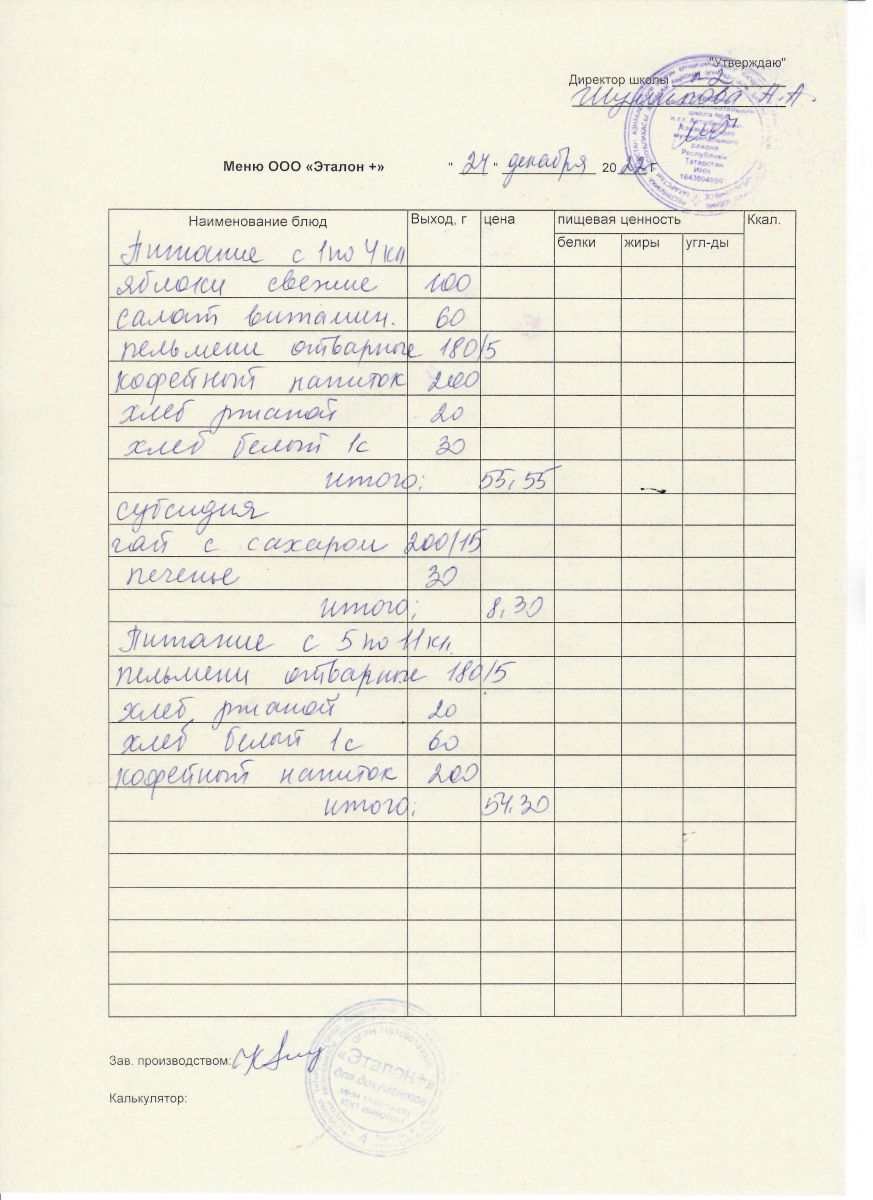 "Утверждаю"
Директор школы №2
А.А.
Меню ООО «Эталон +» " 24 " декабря 2022 г
Наименование блюд Выход, г цена пищевая ценность Ккал.
белки жиры угл-ды
Питание с 1 по 4 кл
яблоки свежие 100
салат витамин. 60
пельмени отварные 180/5
кофейный напиток 200
хлеб ржаной 20
хлеб белый 1с 30
итого: 55,55
субсидия
чай с сахаром 200/15
печенье 30
итого: 8,30
Питание с 5 по 11 кл.
пельмени отварные 180/5
хлеб ржаной 20
хлеб белый 1с 60
кофейный напиток 200
итого: 54.30
Зав. производством:
Калькулятор:
школа №2
п.г.т. Актюбинский
Азнакаевского
муниципального
района
Республики
Татарстан
ИНН
«Эталон+»
для документов